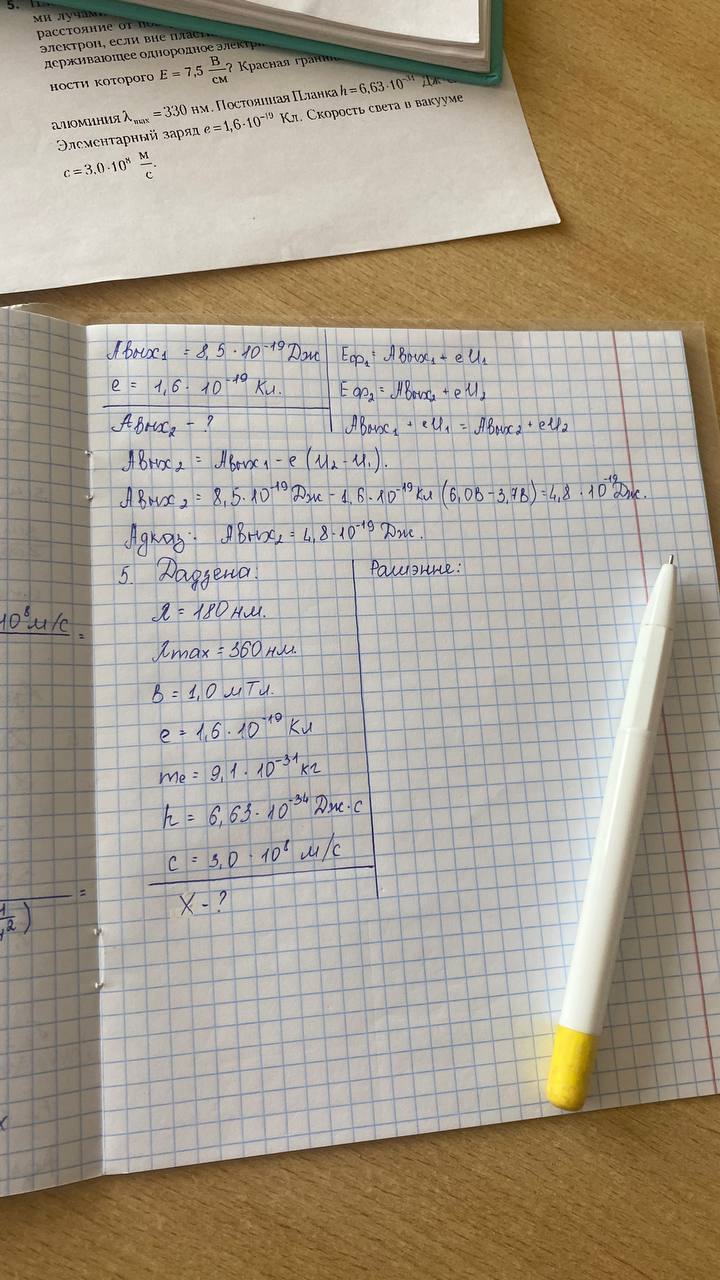 5.
ми лучами
расстояние от
электрон, если вне
держивающее однородное
ности которого E = 7,5 В/см? Красная
алюминия λmax = 330 нм. Постоянная Планка h = 6,63·10⁻³⁴ Дж
Элементарный заряд e = 1,6·10⁻¹⁹ Кл. Скорость света в вакууме
c = 3,0·10⁸ м/с.
Aвых₁ = 8,5·10⁻¹⁹ Дж
e = 1,6·10⁻¹⁹ Кл.
Aвых₂ - ?
Eф₁ = Aвых₁ + eU₁
Eф₂ = Aвых₂ + eU₂
Aвых₁ + eU₁ = Aвых₂ + eU₂
Aвых₂ = Aвых₁ - e (U₂ - U₁).
Aвых₂ = 8,5·10⁻¹⁹ Дж - 1,6·10⁻¹⁹ Кл (6,0В - 3,7В) = 4,8·10⁻¹⁹ Дж.
Адказ: Aвых₂ = 4,8·10⁻¹⁹ Дж.
5. Дадзена:
λ = 180 нм.
λmax = 360 нм.
B = 1,0 мТл.
e = 1,6·10⁻¹⁹ Кл
me = 9,1·10⁻³¹ кг
h = 6,63·10⁻³⁴ Дж·с
c = 3,0·10⁸ м/с
X - ?
Рашэнне:
10⁸ м/с =
=